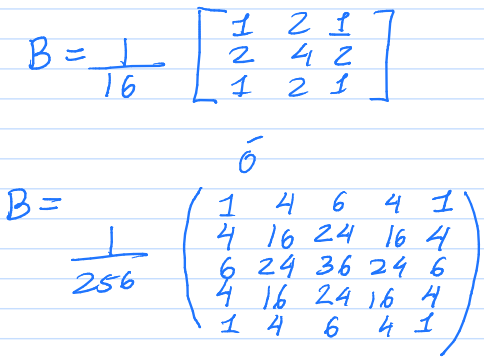 B = 1/16 [ 1 2 1
2 4 2
1 2 1 ]
ó
B = 1/256 ( 1 4 6 4 1
4 16 24 16 4
6 24 36 24 6
4 16 24 16 4
1 4 6 4 1 )